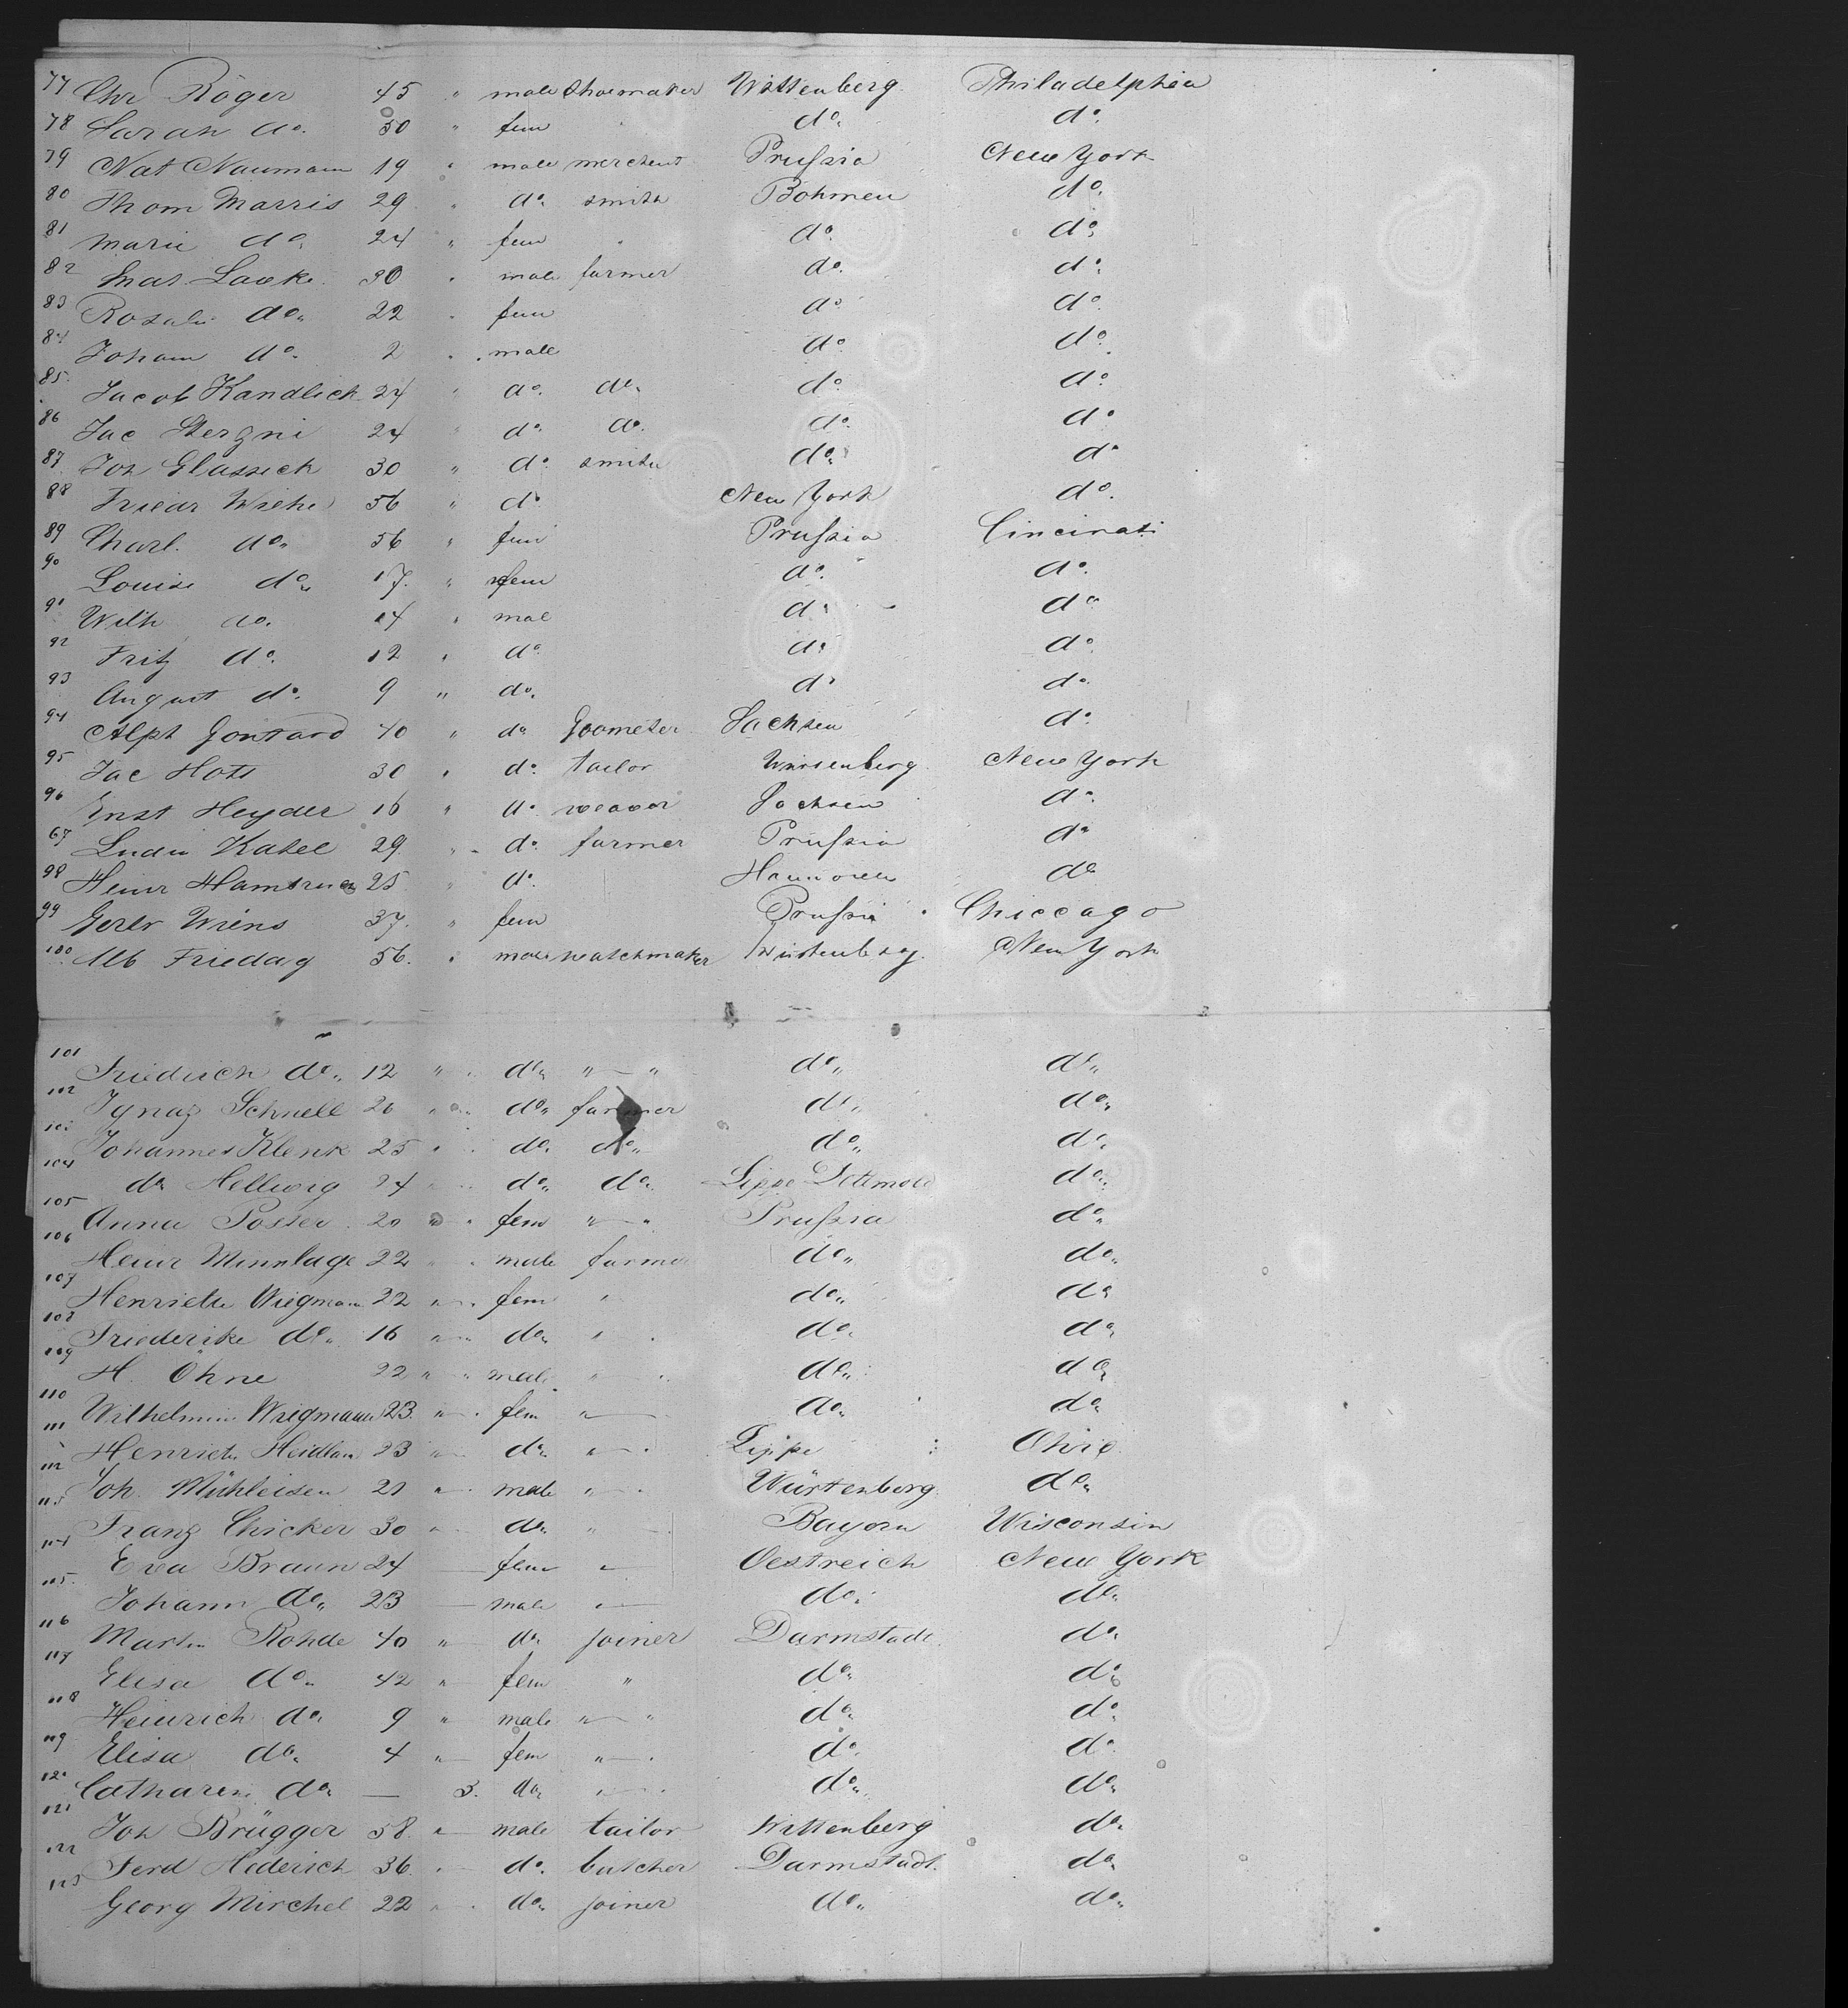 77 Chr Röger 45 " male Shoemaker Wittenberg Philadelphia
78 Sarah do. 30 " fem " do. do.
79 Nat Naumann 19 " male merchent Prußia New York
80 Thom Marris 29 " do. smith Bohmen do.
81 Marie do. 24 " fem " do. do.
82 Laseke 30 " male farmer do. do.
83 Rosalie do. 22 " fem do. do.
84 Johann do. 2 " male do. do.
85. Jacob Kandlick 24 " do. do. do. do.
86 Jac Stergni 24 " do. do. do. do.
87 Joh Glassick 30 " do. smith do. do.
88 Friedr Wiehe 56 " do New York do.
89 Charl. do. 56 " fem Prußia Cincinati
90 Louise do. 17. " fem do. do.
91 Wilh do. 14 " mal do. do.
92 Fritz do. 12 " do. do. do.
93 August do. 9 " do. do. do.
94 Alph Gontard 40 " do. Geometer Sachsen do.
95 Jac Hots 30 " do. tailor New York
96 Ernst Heyder 16 " do. weaver Sachsen do.
67 Katel 29 " do. farmer Prußia do
98 Heinr 25 " do. Hannover do
99 Gerh Wiens 37. " fem Prußia Chiccago
100 Alb Friedag 56. " male watchmaker Würtenberg. New York
101 Friedrich do. 12 " do. " " do. do.
102 Ignaz Schnell 20 " do. farmer do. do.
103 Johannes Klenk 25 " do. do. do. do.
104 do Hellwig 24 " do. do. Lippe Dettmold do.
105 Anna Posser 20 " fem " " Prußia do.
106 Heinr Minnlage 22 " male farmer do. do.
107 Henriette Wiegmann 22 " fem " do. do.
108 Friederike do. 16 " do. " do. do.
109 H. Ohne 22 " male " do. do.
110 Wilhelmin Wiegmann 23. " fem " do. do.
111 Henriette 23 " do. " Lippe Ohio
112 Joh. Mühleisen 21 " male " Würtenberg do.
113 Franz Chicker 30 " do. " Bayern Wisconsin
114 Eva Braun 24 fem " Oestreich New York
115. Johann do. 23 male " do. do.
116 Martin Rohde 40 " do. joiner Darmstadt. do.
117 Elisa do. 42 " fem " do. do.
118 Heinrich do. 9 " male " " do. do.
119 Elisa do. 4 " fem " do. do.
120 Catharin do. — 3. do. " do. do.
121 Joh Brügger 58. " male tailor Wittenberg do.
122 Ferd Hederich 36. " do. butcher Darmstadt. do.
123 Georg Mirchel 22 " do. joiner do. do.